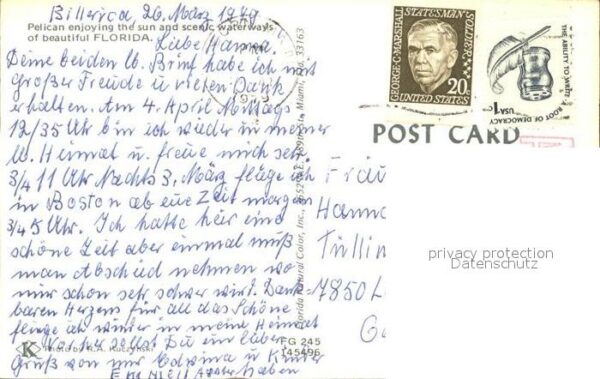 Billerica, 26. März 1979
Pelican enjoying the sun and scenic waterways
of beautiful FLORIDA.
Liebe Hanna.
Deine beiden lb. Brief habe ich mit
Großer Freude u vielen Dank
erhalten. Am 4. April Mittags
12/35 Uhr bin ich wieder in meiner
lb. Heimat u. freue mich sehr.
3/4 11 Uhr Nachts 3. März fliege ich
in Boston ab eure Zeit morgen
3/45 Uhr. Ich hatte hier eine
schöne Zeit aber einmal muß
man Abschied nehmen wo
mir schon sehr schwer wird. Dank
baren Herzens für all das Schöne
fliege ich wieder in meine Heimat
Vorher sollst Du ein lieber
Gruß von mir Edwina u Kinder
haben
K Photo by R.A. Kuczynski
FG 245
145496
Florida Natural Color, Inc., Miami, Fla. 33163
GEORGE C. MARSHALL
STATESMAN SOLDIER
20c
UNITED STATES
THE ABILITY TO WRITE
A ROOT OF DEMOCRACY
USA 1c
POST CARD
Frau
Hanna
Tüllin
7850 L
privacy protection
Datenschutz